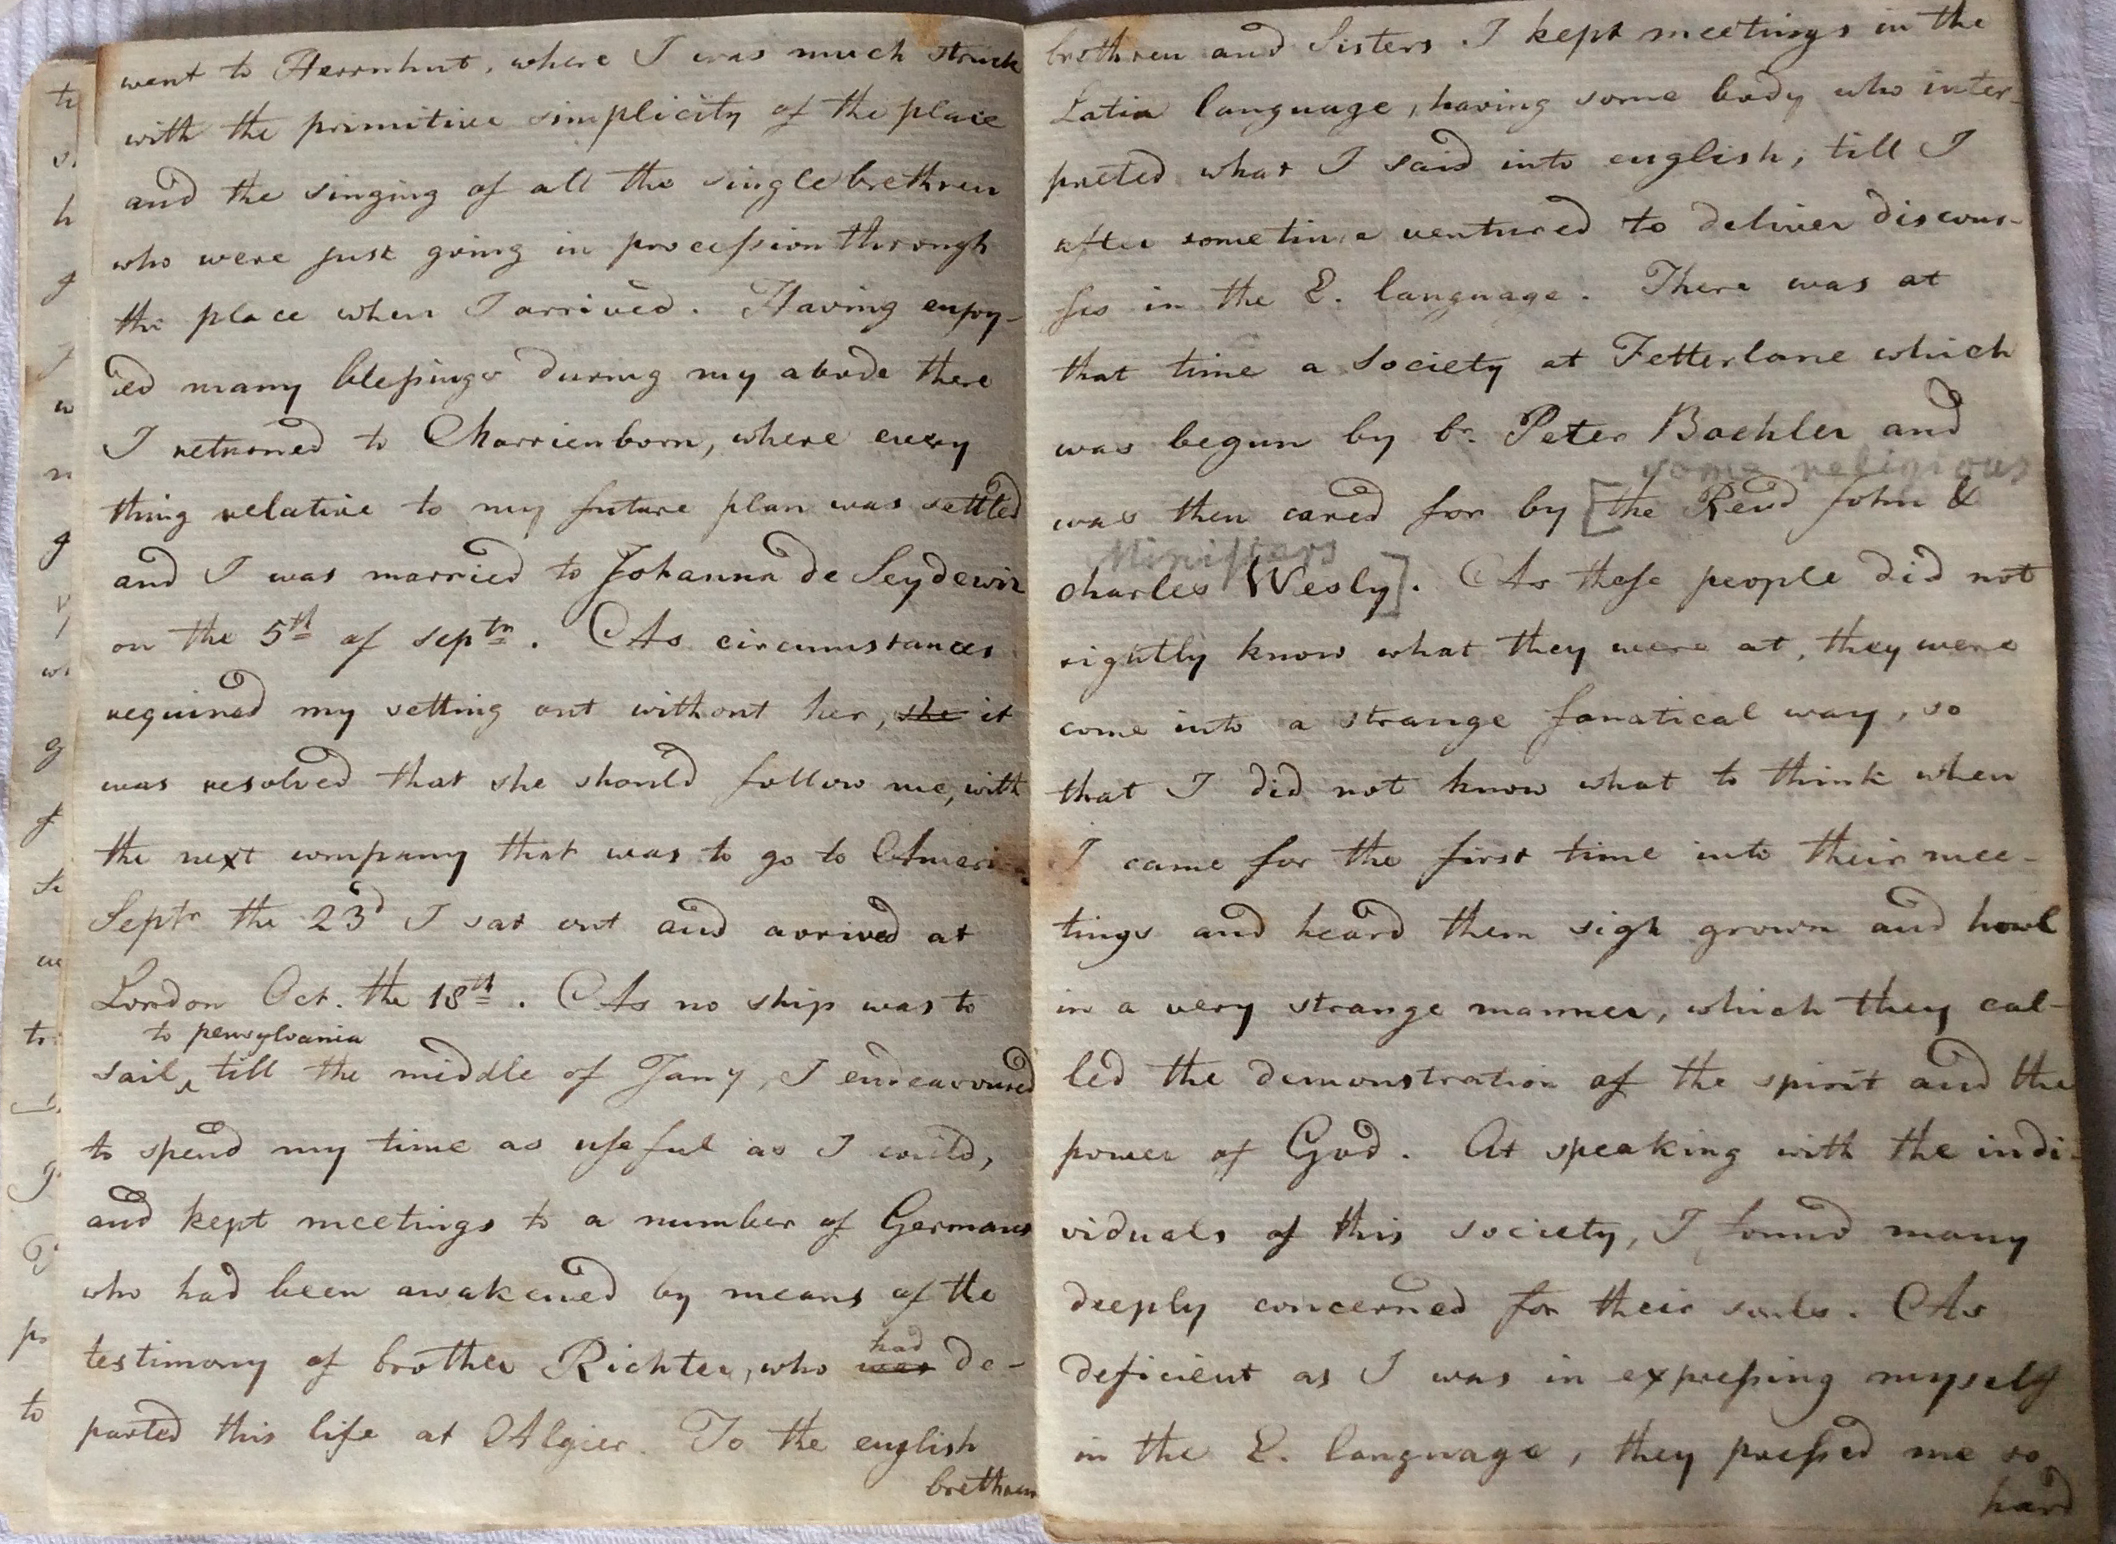 went to Herrnhut, where I was much struck
with the primitive simplicity of the place
and the singing of all the single brethren
who were just going in procession through
the place when I arrived. Having enjoy-
ed many blessings during my abode there
I returned to Marrienborn, where every
thing relative to my future plan was settled
and I was married to Johanna de Seydewiz
on the 5th of septr. As circumstances
required my setting out without her, she it
was resolved that she should follow me, with
the next company that was to go to Ameri
Septr the 23d I sat out and arrived at
London Oct. the 18th. As no ship was to
to pensylvania
sail ‸ till the middle of Jany, I endeavoured
to spend my time as useful as I could,
and kept meetings to a number of Germans
who had been awakened by means of the
had
testimony of brother Richter, who was de-
parted this life at Algier. To the english
brethren
brethren and Sisters. I kept meetings in the
Latin language, having some body who inter-
preted what I said into english, till I
after sometime ventured to deliver discour-
ses in the E. language. There was at
that time a society at Fetterlane which
was begun by br. Peter Boehler and
some religious
was then cared for by [the Revd John &
Ministers
charles Wesly]. As these people did not
rightly know what they were at, they were
come into a strange fanatical way, so
that I did not know what to think when
I came for the first time into their mee-
tings and heard them sigh grown and howl
in a very strange manner, which they cal-
led the demonstration of the spirit and the
power of God. At speaking with the indi-
viduals of this society, I found many
deeply concerned for their souls. As
deficient as I was in expressing myself
in the E. language, they pressed me so
hard